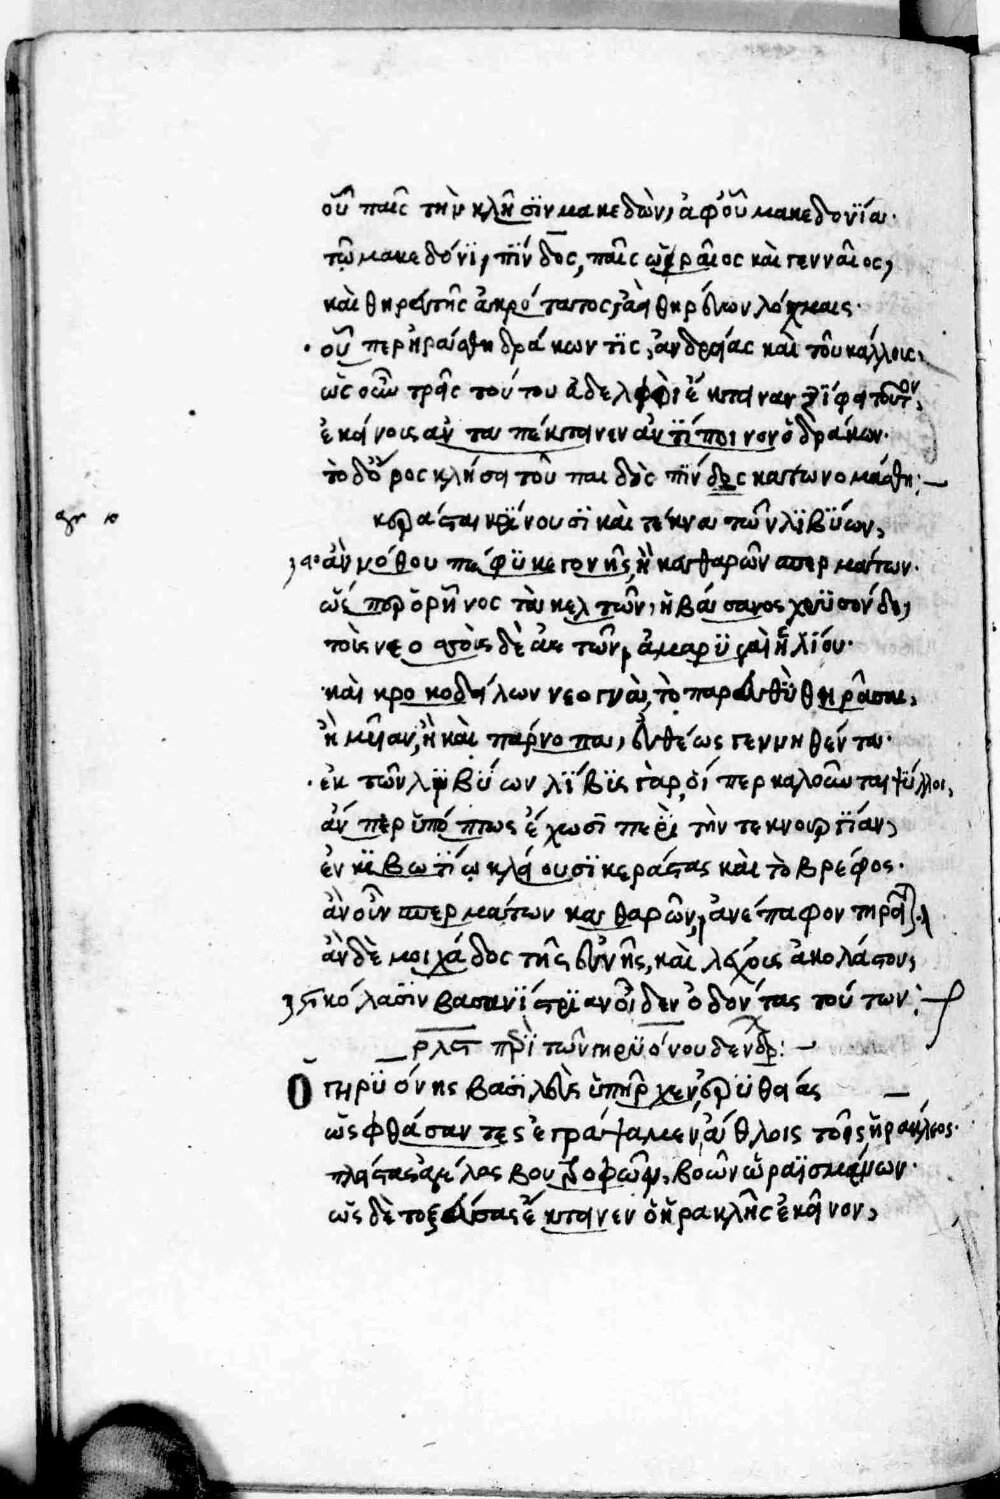 οὗ παῖς τὴν κλῆσϊν μακεδὼν, ἀφ' οὗ μακεδονΐα·
τῶ μακεδόνϊ, πΐνδος, παῖς ὡραῖος καὶ γενναῖος,
καὶ θηρευτὴς ἀκρότατος, ἐν θηρίων λόχμαις·
οὗ περ ἠράσθη δράκων τϊς, ἀνδρείας καὶ τοῦ κάλλους,
ὡς οὖν τρεῖς τούτου ἀδελφοὶ ἔκτειναν ξΐφει τοῦτον,
ἐκείνους ἀνταπέκτεινεν ἀντΐποινον ὁ δράκων·
τὸ δ' ὄρος κλήσει τοῦ παιδὸς πΐνδος κατωνομάσθη:
κεράσται κρΐνουσϊ καὶ τέκνα τῶν λϊβΰων,
ἂν μόθου πέφϋκε γονῆς, ἢ καθαρῶν σπερμάτων·
ὥσπερ ὁ ῥῆνος τὰ κελτῶν, ἡ βάσανος χρϋσὸν δὲ,
τοὺς νεοττοὺς δὲ ἀετῶν, ἀμαρϋγαὶ ἡλίου·
καὶ κροκοδείλων νεογνὰ, τὸ παρευθὺ θηρᾶσαι,
ἢ μυῖαν, ἢ καὶ πάρνοπα, εὐθέως γεννηθέντα·
ἐκ τῶν λϊβΰων λΐβϋς γὰρ, οἵ περ καλοῦνται ψύλλοι,
ἄν περ ὑπόπτως ἔχωσϊ περὶ τὴν τεκνουργΐαν,
ἐν κϊβωτΐω κλείουσϊ κεράστας καὶ τὸ βρέφος·
ἂν οὖν σπερμάτων καθαρῶν, ἀνέπαφον τηρεῖ
ἂν δὲ μοιχάδος τῆς εὐνῆς, καὶ λέχους ἀκολάστου,
κόλασϊν βασανΐστρϊαν οἶδεν ὀδόντας τούτων:
ρλςʹ περὶ τῶν γηρϋόνου δένδρ:
Ὁ γηρϋόνης βασϊλεὺς ὑπῆρχεν ἐρϋθείας
ὡς φθάσαντες ἐγράψαμεν, ἄθλοις τοῖς ἡρακλέος·
πλείστας ἀγέλας βουφορβῶν, βοῶν ὡραϊσμένων·
ὡς δὲ τοξεύσας ἔκτεινεν ὁ ἡρακλῆς ἐκεῖνον,